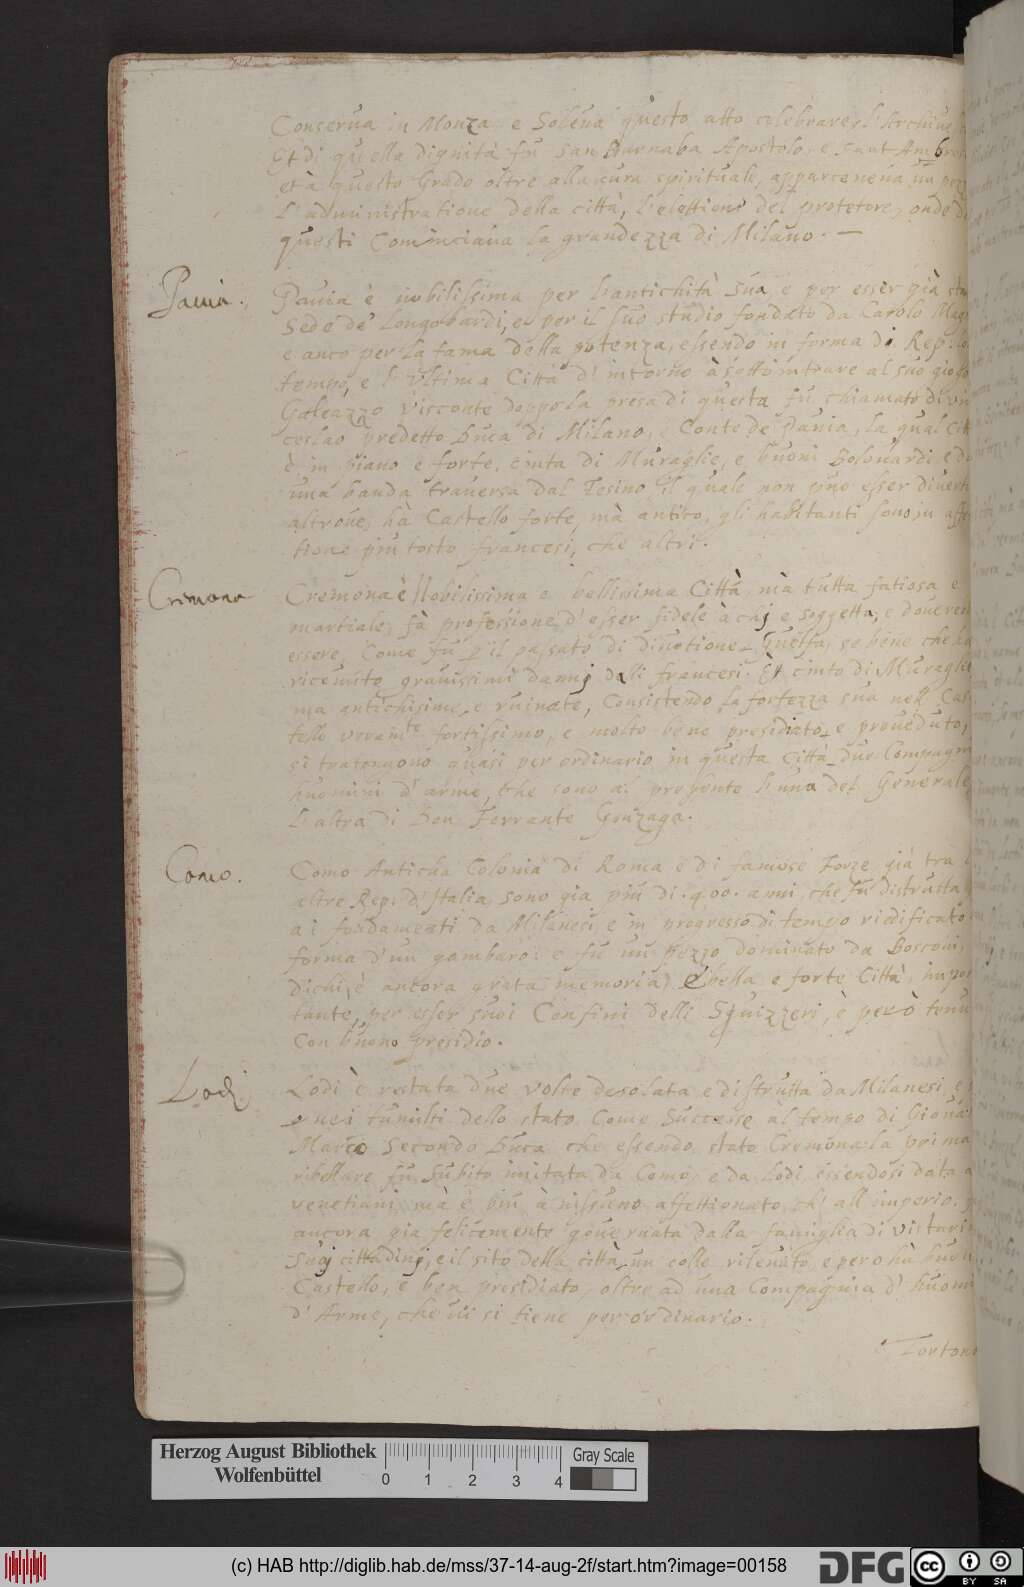 Conserua in Monza, e Soleua questo atto celebrare l'Archiue
Et di quella dignità fù San Barnaba Apostolo, e Sant Ambro
età questo Grado oltre alla cura spirituale, apparteneua un pezz
L'administratione della città, l'elettione del protetore, onde da
questi Cominciaua la grandezza di Milano. —
Pauia.
Pauia è nobilissima per l'antichità Sua, e per esser già stata
Sede de' Longobardi, e per il suo studio fondato da Carolo Mag
e anco per la fama della potenza, essendo in forma di Rep:
tempo, e l'ultima Città d'intorno à sottointrare al suo giogo
Galeazzo Visconte doppo la presa di questa fù chiamato di
ceslao predetto Duca di Milano, e Conte de Pauia, la qual Citt
è in piano e forte, cinta di Muraglie, e buoni Bolouardi e da
una banda trauersa dal Tesino, il quale non può esser diuert
altroue, hà Castello forte, mà antico, gli habitanti sono, in affe
tione più tosto francesi, che altri.
Cremona
Cremona è Nobilissima e bellissima Città, mà tutta fatiosa e
martiale, fà professione d'esser fidele à chi e soggetta, e doueren
essere, Come fù p il passato di diuotione Guelfa, se bene che ha
riceuuto grauissimi danni dalli francesi. Et cinto di Muraglie
ma antichisime, e ruinate, Consistendo la fortezza sua nell Cas
tello veramte fortissimo, e molto bene presidiato, e proueduto,
si tratengono quasi per ordinario in questa Città due Compagni
huomini d'arme, che sono al presente l'una del Generale
L'altra di Don Ferrante Gonzaga.
Como.
Como Anticha Colonia di Roma e di famose Forze già tra l
altre Rep: d'Italia, sono gia più di .400. anni, che fu distrutta
a i fondamenti da Milanesi, e in progresso di tempo riedificato
forma d'un gambaro: e fù un pezzo dominato da Bosconi,
dichi è ancora grata memoria, è bella e forte Città, impor
tante, per esser suoi Confini delli Sguizzeri, è però tenu
Con buono presidio.
Lodi.
Lodi è restata due volte desolata e distrutta da Milanesi e
nei tumulti dello stato Come Successe al tempo di Gioua:
Marco Secondo Duca che essendo stato Cremona la prima
ribellare fù Subito imitata da Como, e da Lodi, essendosi data a
venetiani, mà è più à nissuno affettionato, che all'imperio,
ancora gia felicemente gouernata dalla famiglia di Vistari
Suoi cittadini, e il sito della città, un colle rileuato, e pero hà buon
Castello, e ben presidiato, oltre ad una Compagnia d'huomi
d'Arme, che ui si tiene per ordinario.
Torton
Herzog August Bibliothek
Wolfenbüttel
0 1 2 3 4
Gray Scale
(c) HAB http://diglib.hab.de/mss/37-14-aug-2f/start.htm?image=00158
DFG
cc BY SA